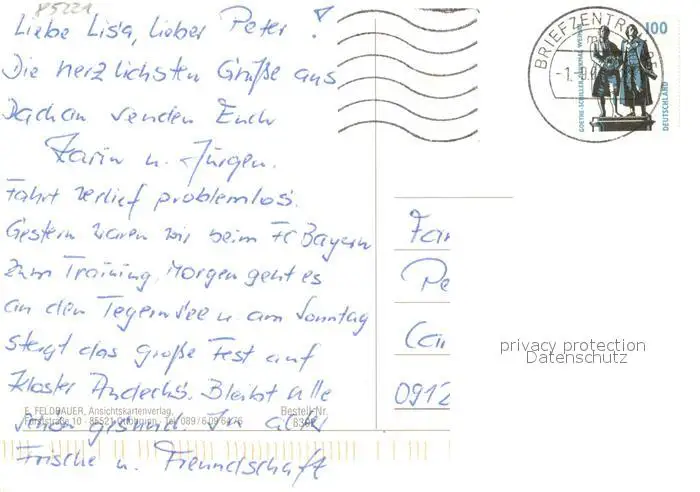 85221
Liebe Lisa, lieber Peter!
Die herzlichsten Grüße aus
Dachau senden Euch
Karin u. Jürgen.
Fahrt verlief problemlos.
Gestern waren wir beim FC Bayern
zum Training, Morgen geht es
an den Tegernsee u. am Sonntag
steigt das große Fest auf
Kloster Andechs. Bleibt alle
schön gesund. In alter
Frische u. Freundschaft
E. FELDBAUER, Ansichtskartenverlag,
85521 Ottobrunn, Tel. 089/6 09 64 76
Bestell-Nr.
BRIEFZENTRUM
100
GOETHE-SCHILLER-DENKMAL WEIMAR
DEUTSCHLAND
Fam
Pe
Ca
0912
privacy protection
Datenschutz